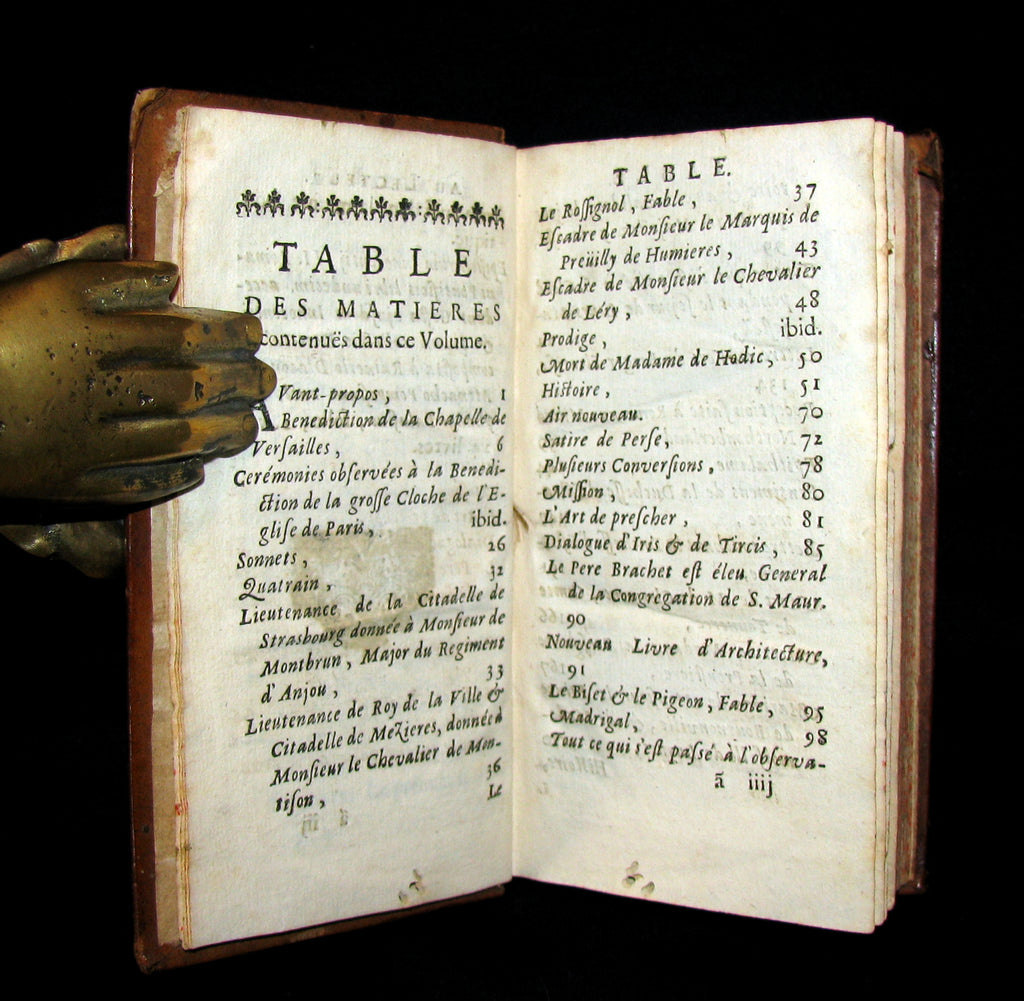 TABLE
DES MATIERES
contenuës dans ce Volume.
AVant-propos, 1
Benediction de la Chapelle de
Verſailles, 6
Cerémonies obſervées à la Benedi-
ction de la groſſe Cloche de l'E-
gliſe de Paris, ibid.
Sonnets, 26
Quatrain, 32
Lieutenance de la Citadelle de
Strasbourg donnée à Monſieur de
Montbrun, Major du Regiment
d'Anjou, 33
Lieutenance de Roy de la Ville &
Citadelle de Mezieres, donnée à
Monſieur le Chevalier de Mon-
tiſon, 36
Le
TABLE.
Le Roſſignol, Fable, 37
Eſcadre de Monſieur le Marquis de
Preüilly de Humieres, 43
Eſcadre de Monſieur le Chevalier
de Léry, 48
Prodige, ibid.
Mort de Madame de Hodic, 50
Hiſtoire, 51
Air nouveau. 70
Satire de Perſe, 72
Pluſieurs Converſions, 78
Miſſion, 80
L'Art de preſcher, 81
Dialogue d'Iris & de Tircis, 85
Le Pere Brachet eſt éleu General
de la Congregation de S. Maur.
90
Nouveau Livre d'Architecture,
91
Le Biſet & le Pigeon, Fable, 95
Madrigal, 98
Tout ce qui s'eſt paſſé à l'obſerva-
ã iiij